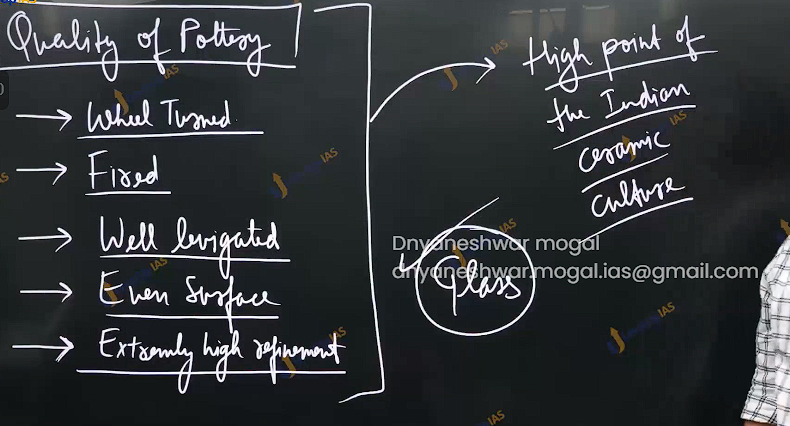 Quality of Pottery
→ Wheel Turned
→ Fired
→ Well levigated
→ Even Surface
→ Extremly high refinement
High point of
the Indian
ceramic
culture
Glass
Dnyaneshwar mogal
dnyaneshwar.mogal.ias@gmail.com
IAS
IAS
IAS
IAS
IAS
IAS
IAS
IAS
IAS
IAS